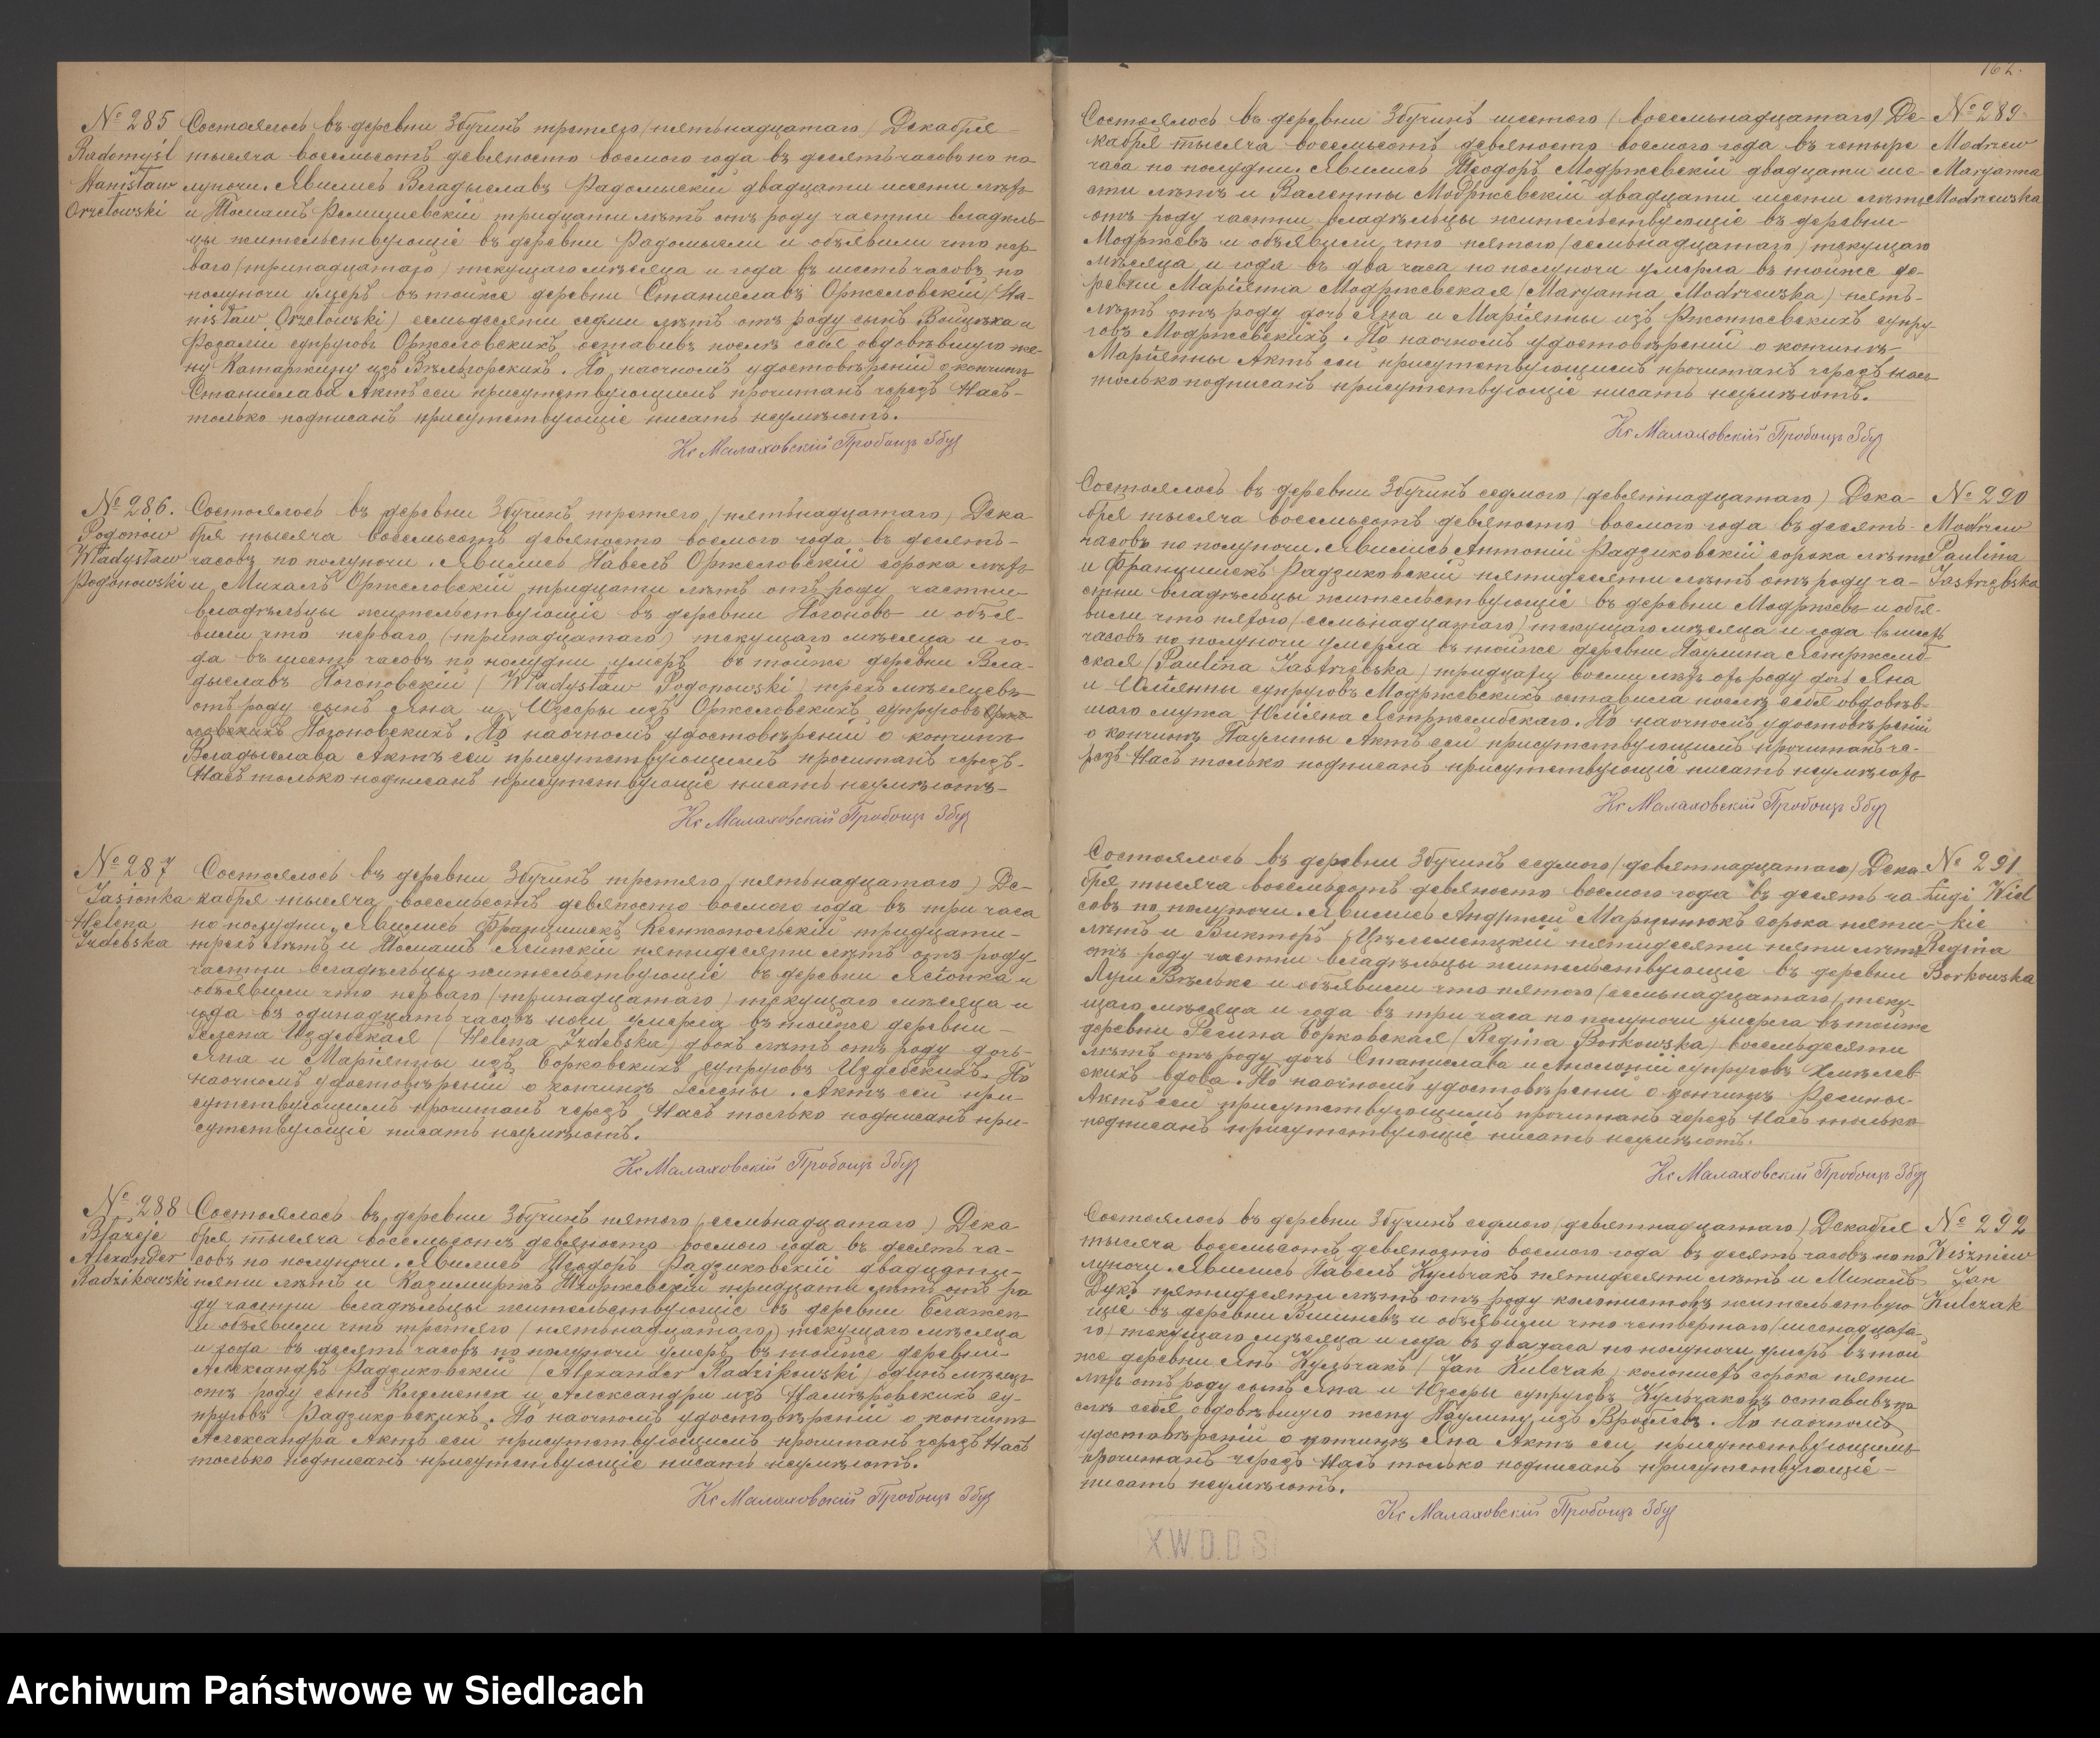 № 285
Radomyśl
Stanisław
Orzełowski
Состоялось въ деревни Збучинъ третяго (пятьнадцатаго) Декабря
тысяча восемьсотъ девяносто восмого года въ десять часовъ по по-
луночи. Явились Владыславъ Радомыскій двадцати шести лѣтъ
и Томашъ Ремишевскій тридцати лѣтъ отъ роду частни владѣль-
цы жительствующіе въ деревни Радомысли и объявили что пер-
ваго (тринадцатаго) текущаго мѣсяца и года въ шесть часовъ по
полуночи умеръ въ тойже деревни Станиславъ Оржеловскій (Sta-
nisław Orzełowski) семьдесяти седми лѣтъ отъ роду сынъ Войцѣха и
Розаліи супруговъ Оржеловскихъ оставивъ послѣ себя овдовѣвшую же-
ну Катаржину изъ Вѣльгорскихъ. По наочномъ удостовѣреніи о кончинѣ
Станислава Актъ сей присутствующимъ прочитанъ черезъ Насъ
только подписанъ присутствующіе писать неумѣютъ.
Кс Малаховскій Пробощъ Збуч
№ 286.
Pogonow
Władysław
Pogonowski
Состоялось въ деревни Збучинъ третяго (пятьнадцатаго) Дека
бря тысяча восемьсотъ девяносто восмого года въ десять
часовъ по полуночи. Явились Павелъ Оржеловскій сорока лѣтъ
и Михалъ Оржеловскій тридцати лѣтъ отъ роду частни
владѣльцы жительствующіе въ деревни Погоновъ и объя-
вили что перваго (тринадцатаго) текущаго мѣсяца и го-
да въ шесть часовъ по полудни умеръ въ тойже деревни Вла-
дыславъ Погоновскій (Władysław Pogonowski) трехъ мѣсяцевъ
отъ роду сынъ Яна и Юзефы изъ Оржеловскихъ супруговъ Орже
ловскихъ Погоновскихъ. По наочномъ удостовѣреніи о кончинѣ
Владыслава Актъ сей присутствующимъ прочитанъ черезъ
Насъ только подписанъ присутствующіе писать неумѣютъ
Кс Малаховскій Пробощъ Збуч
№ 287
Jasionka
Helena
Izdebska
Состоялось въ деревни Збучинъ третяго (пятьнадцатаго) Де-
кабря тысяча восемьсотъ девяносто восмого года въ три часа
по полудни. Явились Францишекъ Ксенжопольскій тридцати
трехъ лѣтъ и Томашъ Ясинскій пятидесяти лѣтъ отъ роду
частни владѣльцы жительствующіе въ деревни Ясіонка и
объявили что перваго (тринадцатаго) текущаго мѣсяца и
года въ одинадцать часовъ ночи умерла въ тойже деревни
Гелена Издебская (Helena Izdebska) двохъ лѣтъ отъ роду дочь
Яна и Маріянны изъ Борковскихъ супруговъ Издебскихъ. По
наочномъ удостовѣреніи о кончинѣ Гелены. Актъ сей при-
сутствующимъ прочитанъ черезъ Насъ только подписанъ при-
сутствующіе писать неумѣютъ.
Кс Малаховскій Пробощъ Збуч
№ 288
Błażeje
Alexander
Radzikowski
Состоялось въ деревни Збучинъ пятого (семьнадцатаго) Дека
бря тысяча восемьсотъ девяносто восмого года въ десять ча-
совъ по полуночи. Явились Теодоръ Радзиковскій двадцати
пяти лѣтъ и Казимиръ Тхоржевскій тридцати лѣтъ отъ ро
ду частни владѣльцы жительствующіе въ деревни Блажеи
и объявили что третяго (пятьнадцатаго) текущаго мѣсяца
и года въ десять часовъ по полуночи умеръ въ тойже деревни
Александръ Радзиковскій (Alexander Radzikowski) одинъ мѣсяцъ
отъ роду сынъ Клеменса и Александры изъ Налив­ровскихъ су-
пруговъ Радзиковскихъ. По наочномъ удостовѣреніи о кончинѣ
Александра Актъ сей присутствующимъ прочитанъ черезъ Насъ
только подписанъ присутствующіе писать неумѣютъ.
Кс Малаховскій Пробощъ Збуч
162.
№ 289
Modrzew
Maryanna
Modrzewska
Состоялось въ деревни Збучинъ шестого (восемьнадцатаго) Де-
кабря тысяча восемьсотъ девяносто восмого года въ четыре
часа по полудни. Явились Теодоръ Модржевскій двадцати ше-
сти лѣтъ и Валенты Модржевскій двадцати шести лѣтъ
отъ роду частни владѣльцы жительствующіе въ деревни
Модржевъ и объявили что пятого (семьнадцатаго) текущаго
мѣсяца и года въ два часа по полуночи умерла въ тойже де-
ревни Маріянна Модржевская (Maryanna Modrzewska) пять
лѣтъ отъ роду дочь Яна и Маріянны изъ Ржонжевскихъ супру-
говъ Модржевскихъ. По наочномъ удостовѣреніи о кончинѣ
Маріянны Актъ сей присутствующимъ прочитанъ черезъ насъ
только подписанъ присутствующіе писать неумѣютъ.
Кс Малаховскій Пробощъ Збуч
№ 290
Modrzew
Paulina
Jastrzębska
Состоялось въ деревни Збучинъ седмого (девятнадцатаго) Дека-
бря тысяча восемьсотъ девяносто восмого года въ десять
часовъ по полуночи. Явились Антоній Радзиковскій сорока лѣтъ
и Францишекъ Радзиковскій пятидесяти лѣтъ отъ роду ча-
стни владѣльцы жительствующіе въ деревни Модржевъ и объя-
вили что пятого (семьнадцатаго) текущаго мѣсяца и года въ шесть
часовъ по полуночи умерла въ тойже деревни Паулина Ястржемб-
ская (Paulina Jastrzębska) тридцати восми лѣтъ отъ роду дочь Яна
и Юліянны супруговъ Модржевскихъ оставила послѣ себя овдовѣв-
шаго мужа Юліяна Ястржембскаго. По наочномъ удостовѣреніи
о кончинѣ Паулины Актъ сей присутствующимъ прочитанъ че-
резъ Насъ только подписанъ присутствующіе писать неумѣютъ
Кс Малаховскій Пробощъ Збуч
№ 291
Ługi Wiel
kie
Regina
Borkowska
Состоялось въ деревни Збучинъ седмого (девятнадцатаго) Дека
бря тысяча восемьсотъ девяносто восмого года въ десять ча
совъ по полуночи. Явились Андржей Марцинюкъ сорока пяти
лѣтъ и Викторъ Цѣлемецкій пятидесяти пяти лѣтъ
отъ роду частни владѣльцы жительствующіе въ деревни
Луги Вѣльке и объявили что пятого (семьнадцатаго) теку-
щаго мѣсяца и года въ три часа по полуночи умерла въ тойже
деревни Регина Борковская (Regina Borkowska) восемьдесяти
лѣтъ отъ роду дочь Станислава и Аполоніи супруговъ Хмѣлев
скихъ вдова. По наочномъ удостовѣреніи о кончинѣ Регины
Актъ сей присутствующимъ прочитанъ черезъ Насъ только
подписанъ присутствующіе писать неумѣютъ.
Кс Малаховскій Пробощъ Збуч
№ 292
Wiszniew
Jan
Kulczak
Состоялось въ деревни Збучинъ седмого (девятнадцатаго) Декабря
тысяча восемьсотъ девяносто восмого года въ десять часовъ по по
луночи. Явились Павелъ Кульчакъ пятидесяти лѣтъ и Михалъ
Дукъ пятидесяти лѣтъ отъ роду колонистовъ жительствую
щіе въ деревни Вишневъ и объявили что четвертаго (шеснадцата
го) текущаго мѣсяца и года въ два часа по полуночи умеръ въ той
же деревни Янъ Кульчакъ (Jan Kulczak) колонистъ сорока пяти
лѣтъ отъ роду сынъ Яна и Юзефы супруговъ Кульчаковъ оставивъ по
слѣ себя овдовѣвшую жену Паулину изъ Врублевъ. По наочномъ
удостовѣреніи о кончинѣ Яна Актъ сей присутствующимъ
прочитанъ черезъ Насъ только подписанъ присутствующіе
писать неумѣютъ.
Кс Малаховскій Пробощъ Збуч
X.W.D.D.S
Archiwum Państwowe w Siedlcach